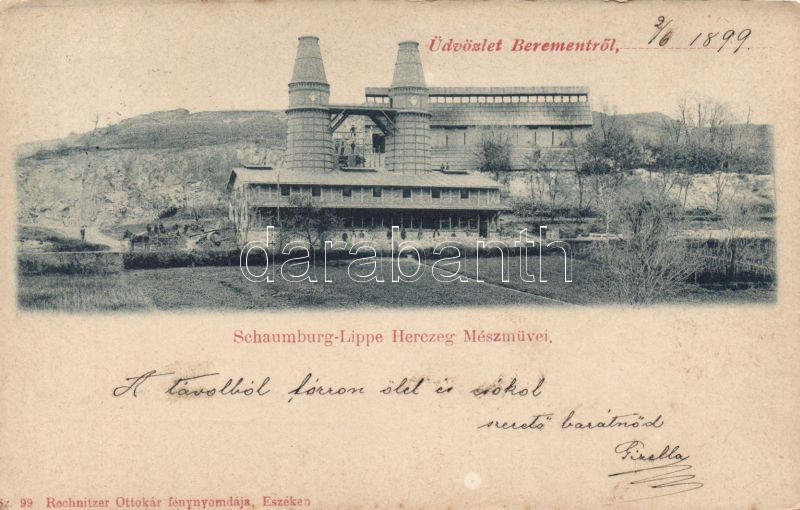 Üdvözlet Berementről,
2/6 1899.
darabanth
Schaumburg-Lippe Herczeg Mészmüvei.
A távolból forron ölel és csókol
szerető barátnőd
Gizella
Sz. 99 Rechnitzer Ottokár fénynyomdája, Eszéken